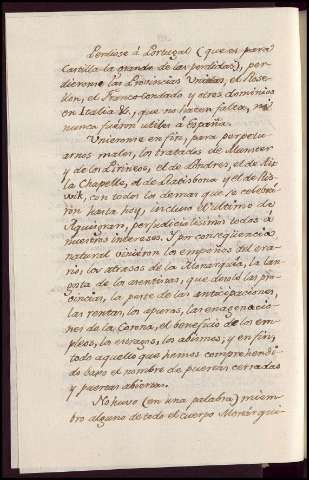 Perdiose á Portugal (que es para
Castilla la grande de las perdidas), per-
dieronse las Provincias Unidas, el Rose-
llon, el Franco Condado y otros dominios
en Italia &, que no hacen falta, ni
nunca fueron utiles á España.
Unieronse en fin, para perpetu-
arnos males, los tratados de Munster
y de los Pirineos, el de Londres, el de Aix
la Chapelle, el de Ratisbona y el de Ris-
vik, con todos los demas que se celebra-
ron hasta hoy, incluso el ultimo de
Aquisgran, perjudicialisimos todos á
nuestros intereses. Y por conseqüencia
natural vinieron los empeños del era-
rio, los atrasos de la Monarquía, la lan-
gosta de los asentistas, que desoló las pro-
vincias, la peste de las anticipaciones,
las rentas, los apuros, las enagenacio-
nes de la Corona, el beneficio de los em-
pleos, los estragos, los abismos; y en fin,
todo aquello que hemos comprehendi-
do baxo el nombre de puertas cerradas
y puertas abiertas.
No huvo (en una palabra) miem-
bro alguno de todo el cuerpo Monarqui-